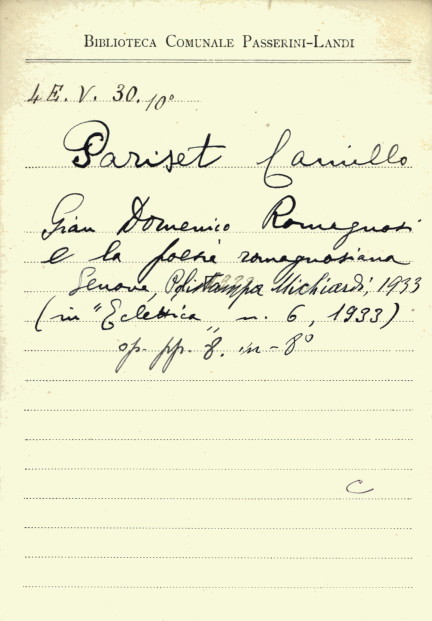 BIBLIOTECA COMUNALE PASSERINI-LANDI
4 E. V. 30. 10°
Pariset Camillo
Gian Domenico Romagnosi
e la poesia romagnosiana
Genova, Michiardi, 1933
(in "Eclettica„ n. 6, 1933)
op. pp. 8. in-8°
C